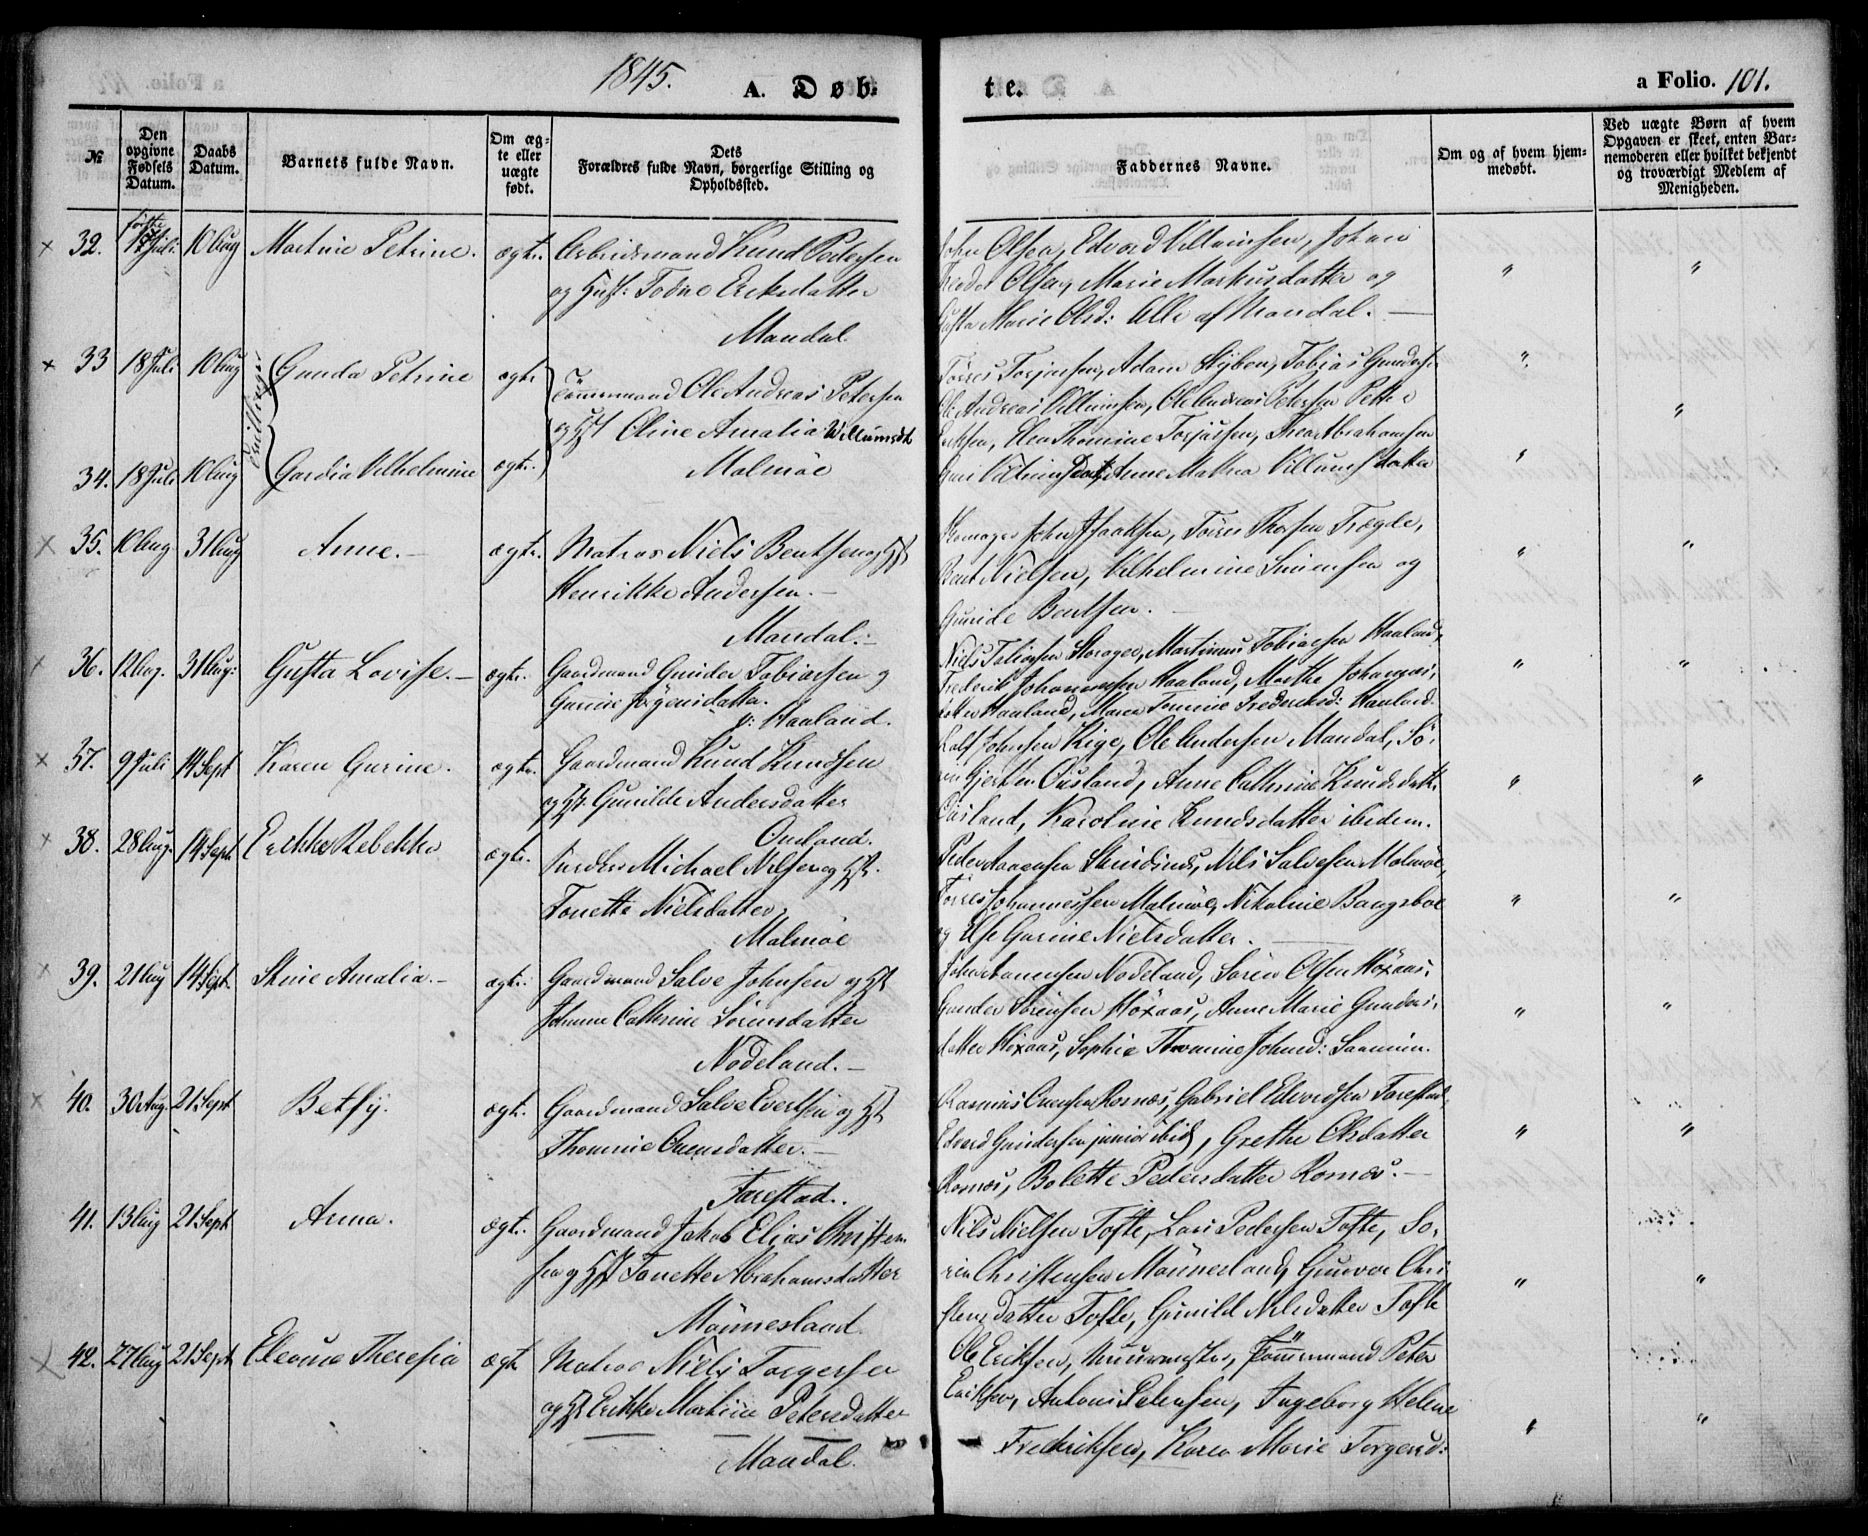 1845. A. Døbte. a Folio. 101.
№ | Den opgivne Fødsels Datum. | Daabs Datum. | Barnets fulde Navn. | Om ægte eller uægte født. | Dets Forældres fulde Navn, borgerlige Stilling og Opholdssted. | Faddernes Navne. | Om og af hvem hjemmedøbt. | Ved uægte Børn af hvem Opgaven er skeet, enten Barnemoderen eller hvilket bekjendt og troværdigt Medlem af Menigheden.
32. Juli 10 Aug Martine Petrine. ægte. Arbeidsmand Knud Pedersen
og Hust: Todne Eriksdatter
Mandal
John Olsen, Edvard Villumsen, Johan
Olsen, Marie Markusdatter og
Marie Olsd: Alle af Mandal. —
33 18 Juli 10 Aug Gunda Petrine ægte Tömmermand Ole Andreas Petersen
og Hst Oline Amalia Willumsdtr
Malmöe
Tvillinger
34. 18 Juli 10 Aug Gardia Vilhelmine ægte.
Törres Torjusen, Adam Stÿben, Tobias Gunders
Ole Andreas Villumsen, Ole Andreas Petersen Petter
Eriksen, Elen Thomine Torjussen, Thea Abrahamsen
Villumsdatter
35. 10 Aug 31 Aug Anne. — ægte. Matros Niels Bentsen og Hst
Henrikke Andersen. —
Mandal. —
John Isaaksen, Törres Thorsen Trægde,
Bent Nielsen, Vilhelmine Simensen og
Gunide Bentsen. —
36. 12 Aug. 31 Aug: Gusta Lovise. — ægte. Gaardmand Gunder Tobiassen og
Gurine Jörgensdatter.
Haaland.
Niels Tobiassen Skrager, Martinus Tobiassen Haaland,
Frederik Johannessen Haaland, Marthe Johannes
datter Haaland, Maren Tomine Frederiksd: Haaland.
37. 9 Juli 14 Sept Karen Gurine. ægte. Gaardmand Knud Knudsen
og Hst. Gunilde Andersdatter
Ousland.
Johnsen Kige, Ole Andersen Mandal, Sö-
ren Gjertsen Ousland, Anne Cathrine Knudsdatter
Ousland, Karoline Knudsdatter ibedem.
38. 28 Aug. 14 Sept. Erikke Rebekka ægte. Michael Nilsen og Hst.
Tonette Nielsdatter,
Malmöe
Peder Aanensen Skindinus, Nils Salvesen Malmöe,
Törres Johannessen Malmöe, Nikoline Bangsboe
og Else Gurine Nielsdatter. —
39. 21 Aug 14 Sept. Stine Amalia. — ægte. Gaardmand Salve Johnsen og Hst
Johanne Cathrine Sörensdatter
Nodeland. —
John Aanensen Nodeland, Sören Olsen Höxaas,
Gunder Sörensen Höxaas, Anne Marie Gunders
datter Höxaas, Sophie Thomine Johnsd: Saanum.
40. 30 Aug. 21 Sept Betsy. ægte. Gaardmand Salve Evertsen og Hst
Thomine Ouensdatter. —
Farestad.
Rasmus Ouensen Romæs, Gabriel Edvardsen Farestad,
Edvard Gundersen junior ibid, Grethe Olsdatter
Romæs, Bolette Pedersdatter Romæs. —
41. 13 Aug 21 Sept. Anna. ægte. Gaardmand Jakob Elias Christen
sen og Hst Tonette Abrahamsdatter
Mönnesland.
Nils Nielsen Tofte, Lars Pedersen Tofte, Sö-
ren Christensen Mönnesland, Gunvor Chri-
stensdatter Tofte, Gunild Nilsdatter Tofte
42. 27 Aug 21 Sept Elevine Theresia ægte Matros Niels Torgersen
og Hst Erikke Martine Petersdatter
Mandal.
Ole Eriksen, Muurmester, Tömmermand Peter
Eriksen, Antoni Petersen, Ingeborg Helene
Frederiksen, Karen Marie Torgersd: